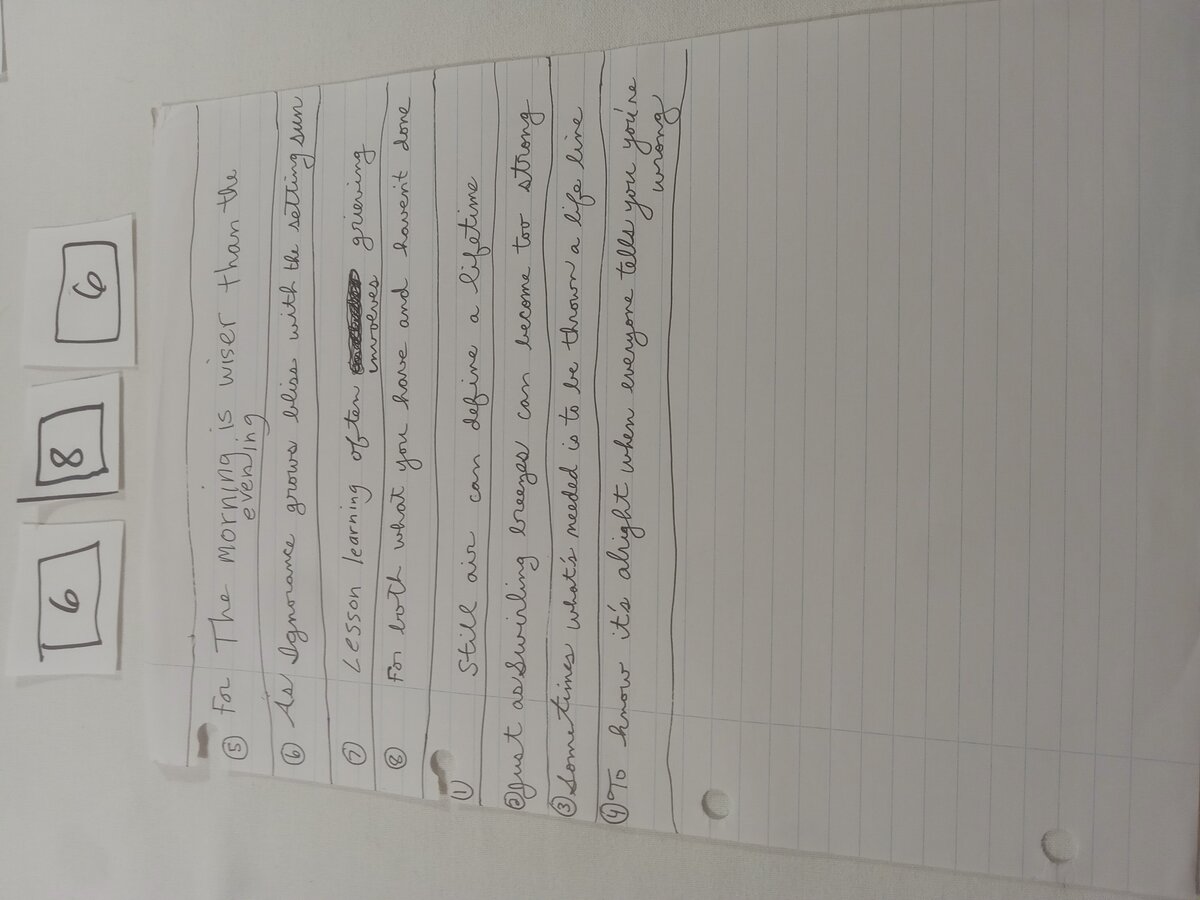 6 8 6
⑤ For The Morning is wiser than the
evening
⑥ As Ignorance grows bliss with the setting sun
⑦ Lesson learning often grieving
involves
⑧ For both what you have and haven't done
① Still air can define a lifetime
② Just as swirling breezes can become too strong
③ Sometimes what's needed is to be thrown a life line
④ To know it's alright when everyone tells you you're
wrong